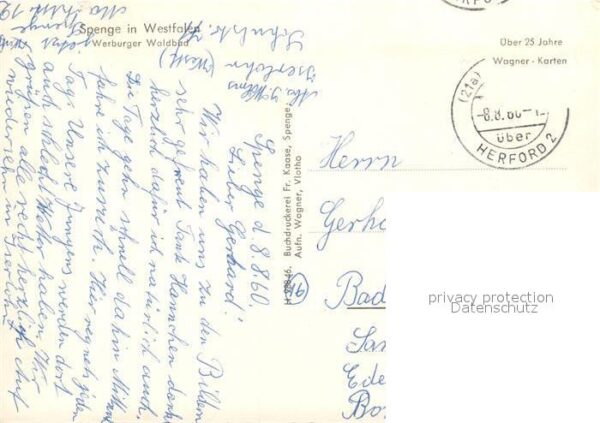 Spenge in Westfalen
Werburger Waldbad
Über 25 Jahre
Wagner - Karten
(21a)
-8.8.60-1
über
HERFORD 2
HERFORD
Buchdruckerei Fr. Kaase, Spenge
Aufn. Wagner, Vlotho
Iserlohn (Westf)
Spenge d. 8.8.60
Lieber Gerhard!
Wir haben uns zu den Bildern
sehr gefreut Tante Hannchen dankt
herzlich dafür ich natürlich auch.
Die Tage gehn schnell dahin
fahre ich zurück. Hier regnets jeden
Tag. Unsere Jungens werden dort
auch schlecht Wetter haben. Wir
grüßen alle recht herzlich Auf
wiedersehn in Iserlohn
Herrn
Gerha
Bad
San
Ede
privacy protection
Datenschutz